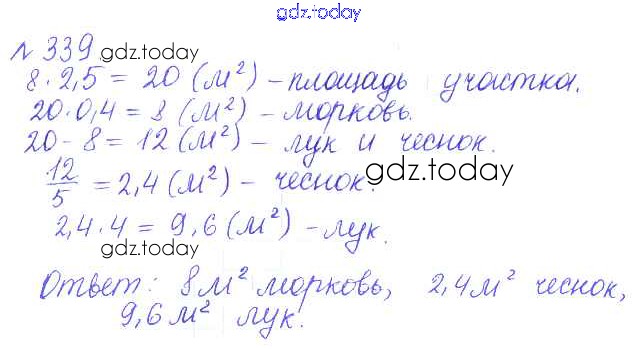 gdz.today
№ 339 gdz.today
8 · 2,5 = 20 (м²) – площадь участка.
20·0,4 = 8 (м²) – морковь.
20 - 8 = 12 (м²) – лук и чеснок.
12/5 = 2,4 (м²) – чеснок. gdz.today
2,4 · 4 = 9,6 (м²) – лук.
gdz.today
Ответ: 8м² морковь, 2,4м² чеснок,
9,6 м² лук.